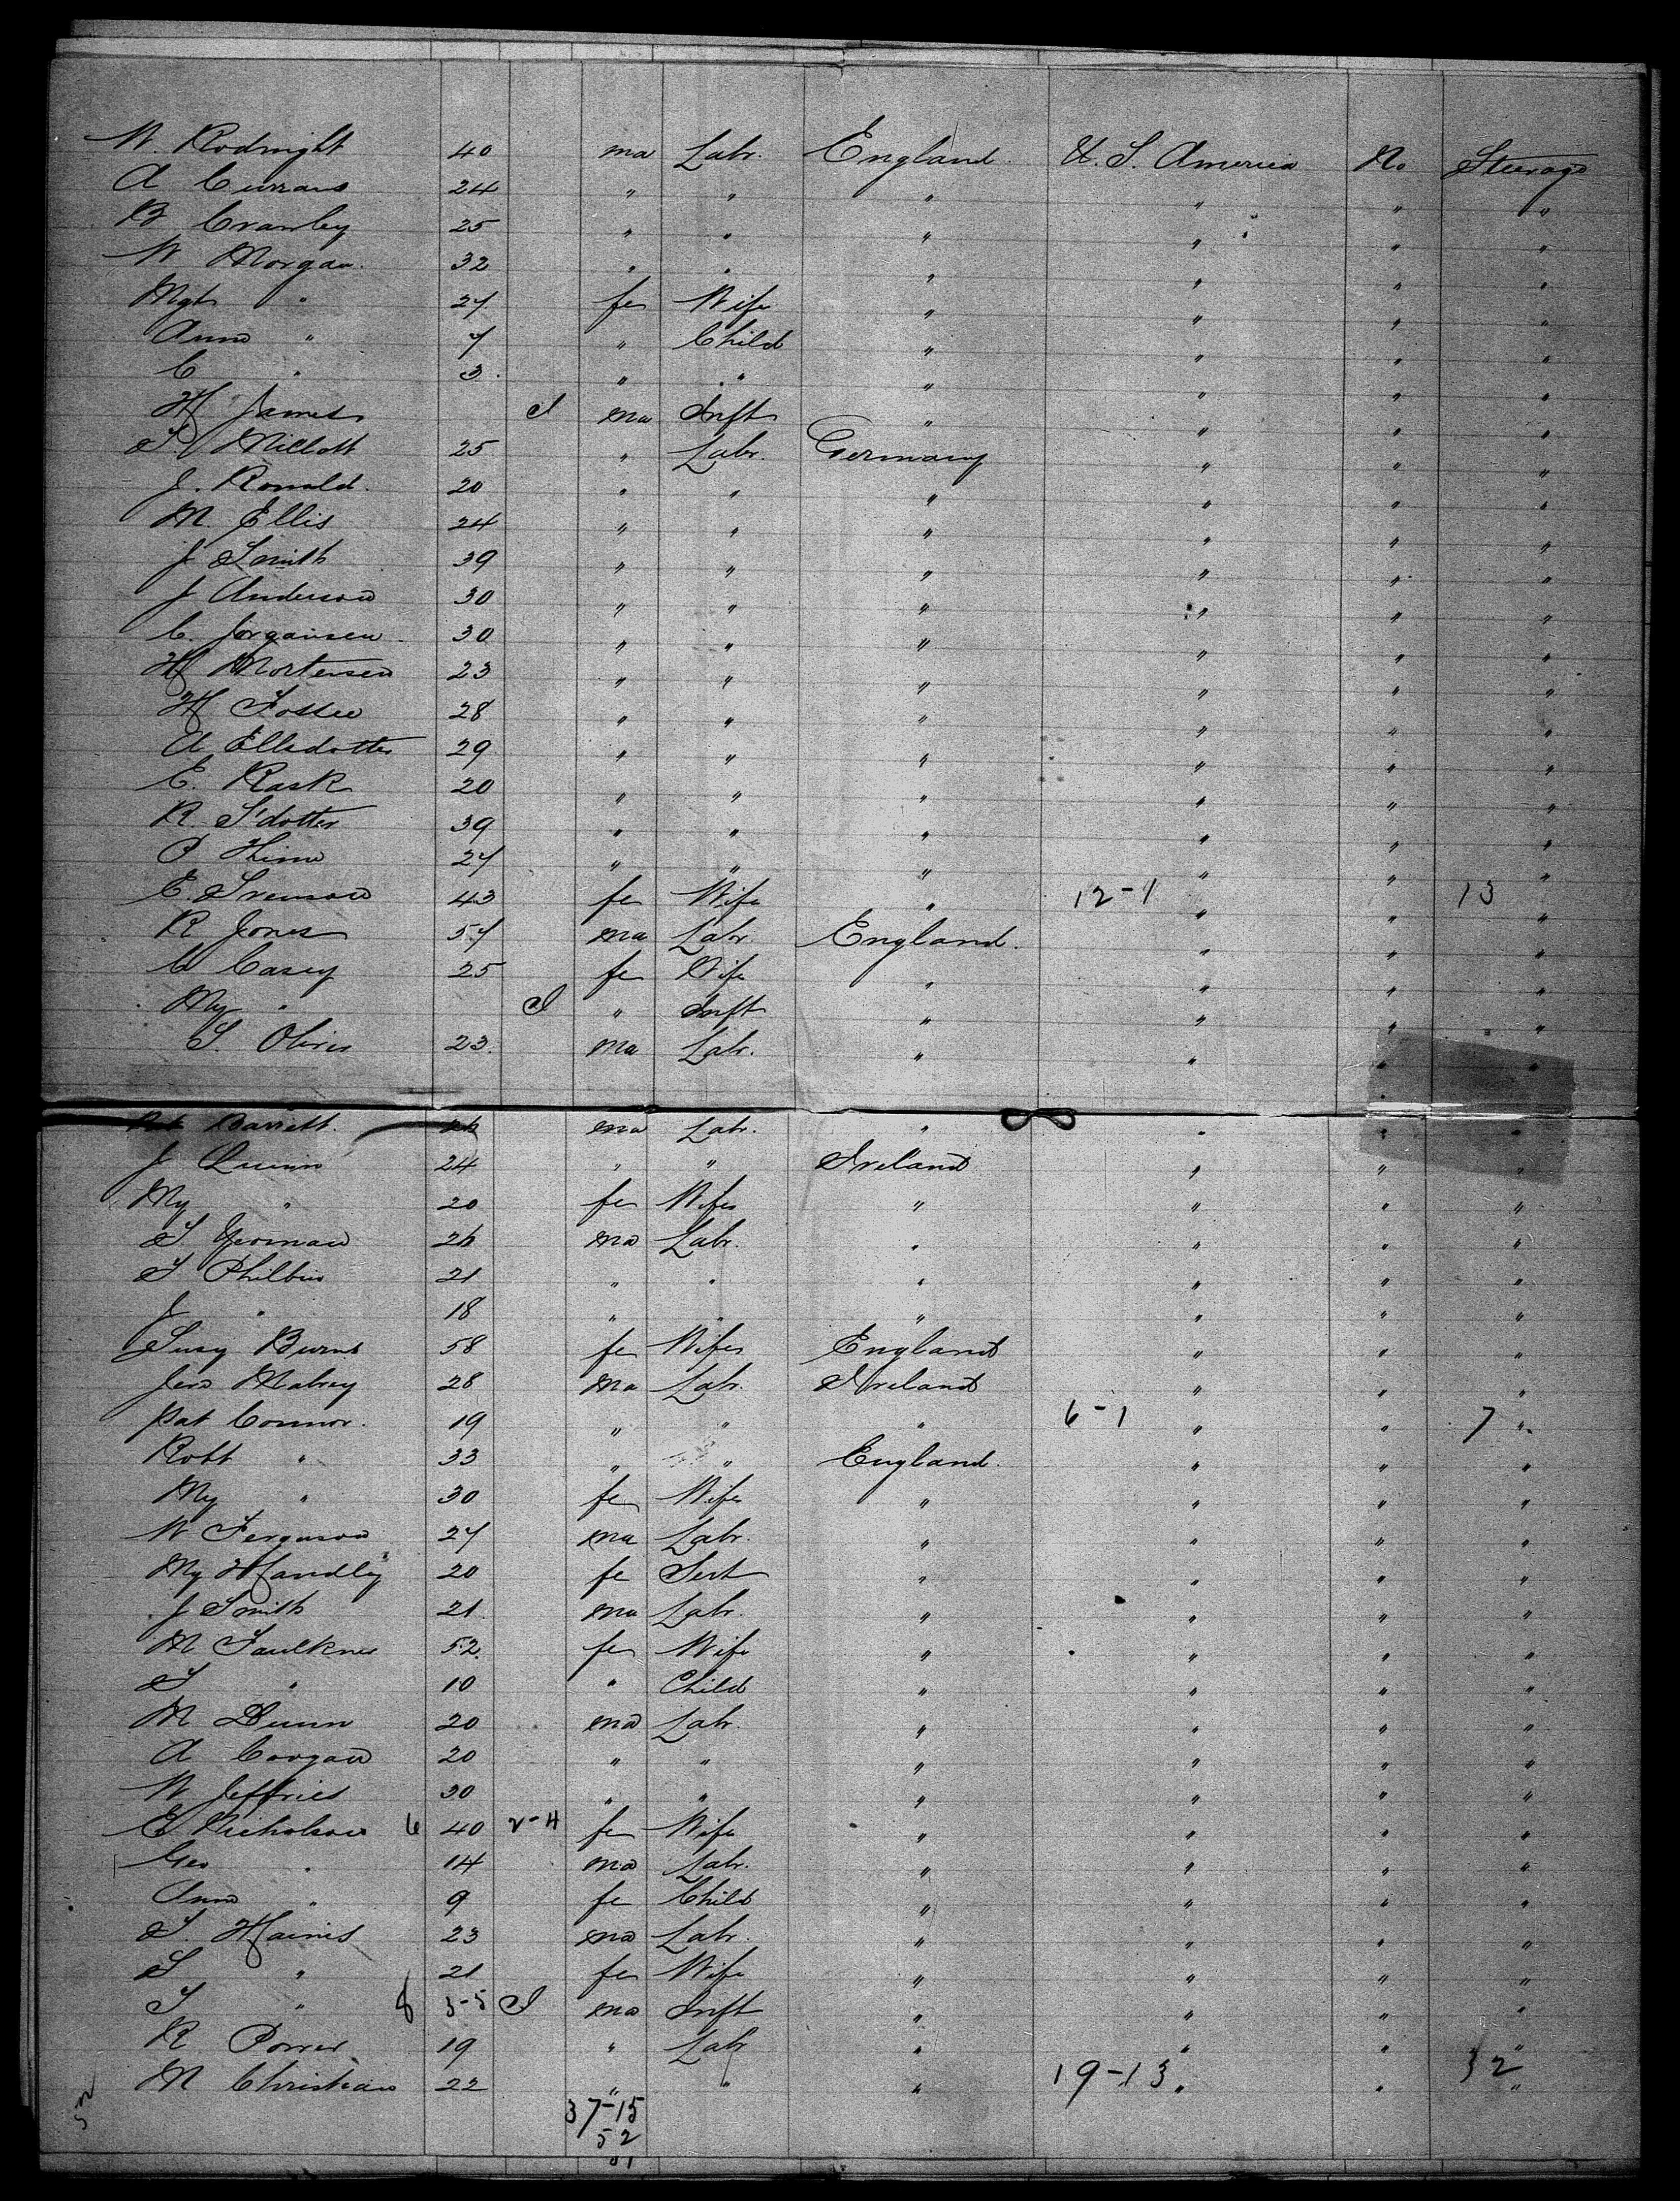 W. Rodnight 40 ma Labr. England. U. S. America No Steerage
A Currans 24 " " " " " "
B Crawley 25 " " " " " "
W Morgan. 32 " " " " " "
Mgt " 27 fe Wife " " " "
Anna " 7 " Child " " " "
C " 3. " " " " " "
H James I ma Inft " " " "
T. Millott 25 " Labr. Germany " " "
J. Ronald. 20 " " " " " "
M. Ellis 24 " " " " " "
J Smith 39 " " " " " "
J Anderson 30 " " " " " "
C. Jorgansen 30 " " " " " "
H Mortensen 23 " " " " " "
H Foster 28 " " " " " "
A Ellsdotter 29 " " " " " "
E. Rask 20 " " " " " "
R. S'dotter 39 " " " " " "
P 27 " " " " " "
E. Svenson 43 fe Wife " 12-1 " " 13 "
R Jones 57 ma Labr England. " " "
C Casey 25 fe Wife " " " "
My " I " Inft " " " "
S. Oliver 23. ma Labr. " " " "
Barrett. ma Labr. " " " "
J Quinn 24 " " Ireland " " "
My " 20 fe Wife " " " "
T 26 ma Labr. " " " "
T Philbin 21 " " " " " "
J " 18 " " " " " "
Susy Burns 58 fe Wife England " " "
Jno Mabrey 28 ma Labr. Ireland " " "
Pat Connor. 19 " " " 6-1 " " 7 "
Robt " 33 " " England. " " "
My " 30 fe Wife " " " "
W Ferguson 27 ma Labr. " " " "
My Handley 20 fe Servt " " " "
J Smith 21 ma Labr. " " " "
M Faulkner 52. fe Wife " " " "
S " 10 " Child " " " "
M Dunn 20 ma Labr. " " " "
A Corgan 20 " " " " " "
W Jeffries 30 " " " " " "
E Nicholson 6 40 2-4 fe Wife " " " "
Geo " 14 ma Labr. " " " "
Anna " 9 fe Child " " " "
S. Haines 23 ma Labr. " " " "
S " 21 fe Wife " " " "
T " 8 3-5 I ma Inft " " " "
R Porrer 19 " Labr " " " "
M Christian 22 " " " 19-13 " " 32 "
52
37-15
52